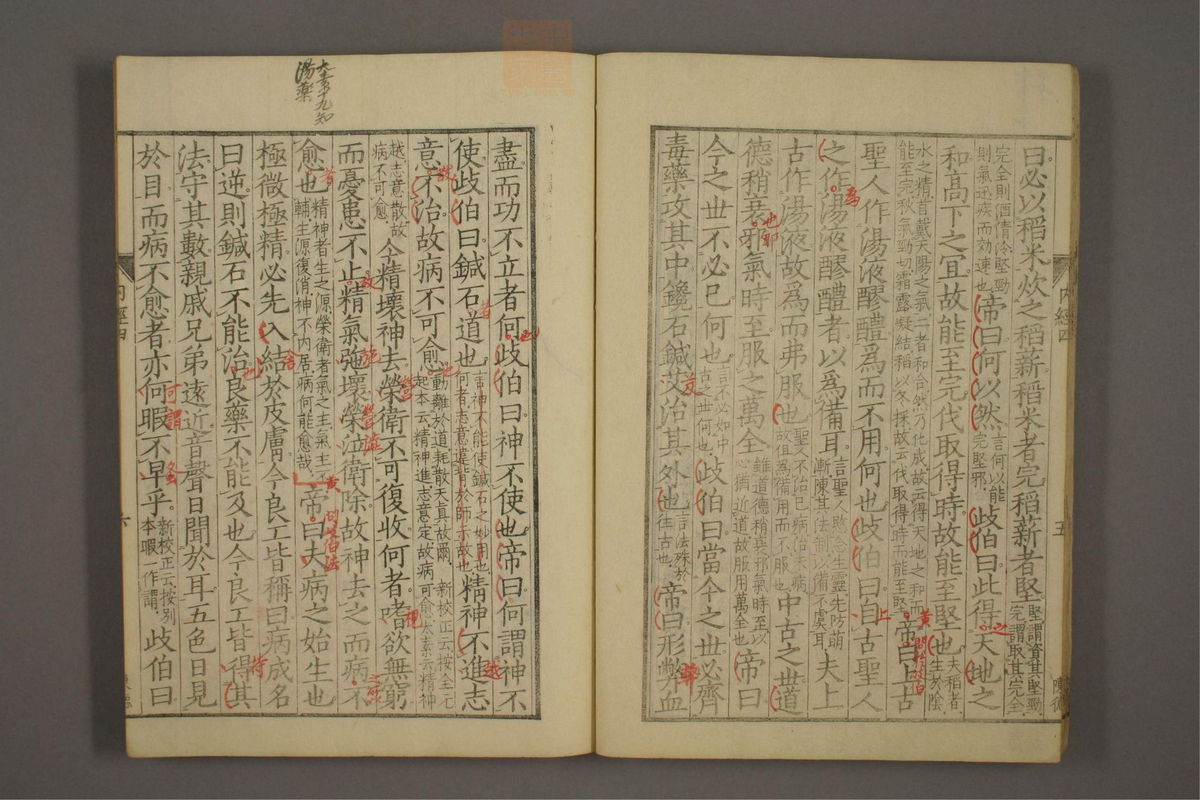 曰必以稻米炊之稻薪稻米者完稻薪者堅堅謂資其堅勁完謂取其完全
完全則酒清冷堅勁則氣迅疾而効速也帝曰何以然言何以能完堅邪歧伯曰此得天地之
和高下之宜故能至完伐取得時故能至堅也夫稻者生於陰
水之精首戴天陽之氣二者和合然乃化成故云得天地之和而能至完秋氣勁切霜露凝結稻以冬採故云伐取得時而能至堅帝曰上古
聖人作湯液醪醴爲而不用何也歧伯曰自古聖人
之作湯液醪醴者以爲備耳言聖人愍念生靈先防萌漸陳其法制以備不虞耳夫上
古作湯液故爲而弗服也聖人不治已病治未病故但爲備用而不服也中古之世道
德稍衰邪氣時至服之萬全雖道德稍衰邪氣時至以心猶近道故服用萬全也帝曰
今之世不必已何也言不必如中古之世何也歧伯曰當今之世必齊
毒藥攻其中鑱石鍼艾治其外也言法殊於往古也帝曰形弊血
盡而功不立者何歧伯曰神不使也帝曰何謂神不
使歧伯曰鍼石道也言神不能使鍼石之妙用也何者志意違背於師示故也精神不進志
意不治故病不可愈動離於道耗散天真故爾新校正云按全元起本云精神進志意定故病可愈太素云精神
越志意散故病不可愈今精壞神去榮衛不可復收何者嗜欲無窮
而憂患不止精氣㢮壞榮泣衛除故神去之而病不
愈也精神者生之源榮衛者氣之主氣主不輔生源復消神不内居病何能愈哉帝曰夫病之始生也
極微極精必先入結於皮膚今良工皆稱曰病成名
曰逆則鍼石不能治良藥不能及也今良工皆得其
法守其數親戚兄弟遠近音聲日聞於耳五色日見
於目而病不愈者亦何暇不早乎新校正云按别本暇一作謂歧伯曰
内經四
五
内經四
六
太素十九知
湯藥